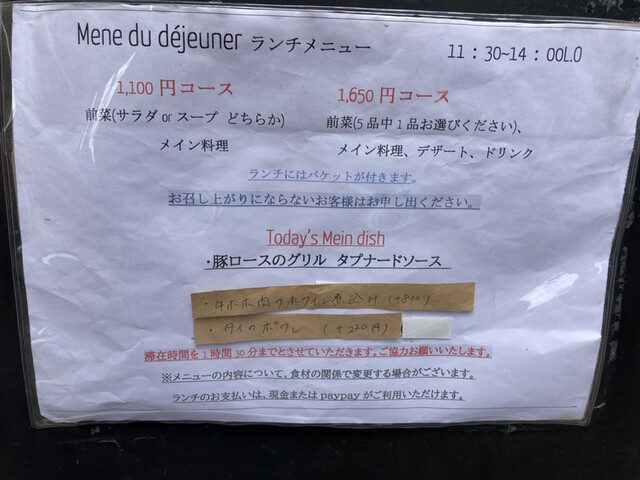 Mene du déjeuner ランチメニュー 11：30~14：00L.O
1,100 円コース 1,650 円コース
前菜(サラダ or スープ どちらか) 前菜(5 品中 1 品お選びください)、
メイン料理 メイン料理、デザート、ドリンク
ランチにはバケットが付きます。
お召し上がりにならないお客様はお申し出ください。
Today's Mein dish
・豚ロースのグリル タプナードソース
・牛ホホ肉の赤ワイン煮込み (+800)
・タイのポワレ (+220円)
滞在時間を 1 時間 30 分までとさせていただきます。ご協力お願いいたします。
※メニューの内容について、食材の関係で変更する場合がございます。
ランチのお支払いは、現金または paypay がご利用いただけます。